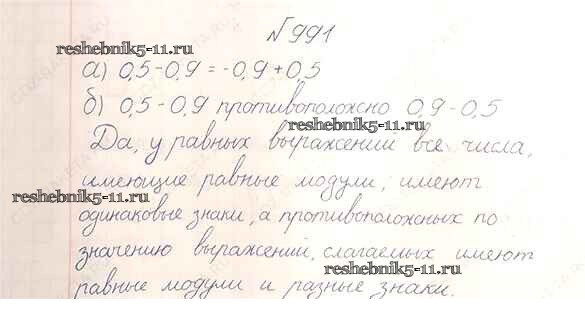 №991
reshebnik5-11.ru
а) 0,5-0,9=-0,9+0,5
б) 0,5-0,9 противоположно 0,9-0,5
reshebnik5-11.ru
Да, у равных выражений все числа,
имеющие равные модули, имеют
reshebnik5-11.ru
одинаковые знаки, а противоположных по
значению выражений, слагаемых имеют
reshebnik5-11.ru
равные модули и разные знаки.